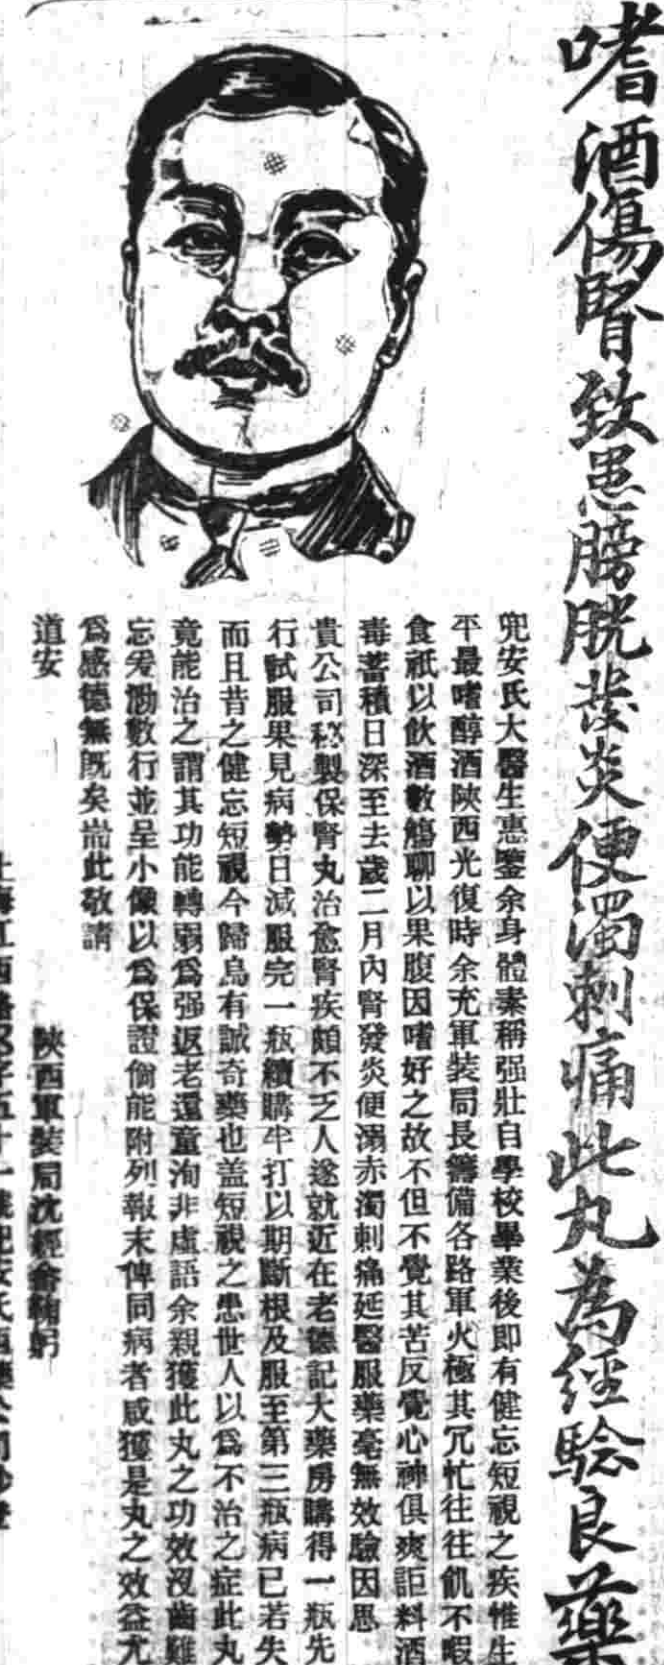 嗜酒傷腎致患膀胱發炎便濁刺痛此丸為經驗良藥
兜安氏大醫生惠鑒余身體素稱强壯自學校畢業後即有健忘短視之疾惟生
平最嗜醇酒陝西光復時余充軍裝局長籌備各路軍火極其冗忙往往飢不暇
食祇以飲酒數觴聊以果腹因嗜好之故不但不覺其苦反覺心神俱爽詎料酒
毒蓄積日深至去歲二月內腎發炎便溺赤濁刺痛延醫服藥毫無效驗因思
貴公司秘製保腎丸治愈腎疾頗不乏人遂就近在老德記大藥房購得一瓶先
行試服果見病勢日減服完一瓶續購半打以期斷根及服至第三瓶病已若失
而且昔之健忘短視今歸烏有誠奇藥也盖短視之患世人以爲不治之症此丸
竟能治之謂其功能轉弱爲强返老還童洵非虛語余親獲此丸之功效沒齒難
忘爰泐數行並呈小像以爲保證倘能附列報末俾同病者咸獲是丸之效益尤
爲感德無既矣耑此敬請
道安
陝西軍裝局沈經